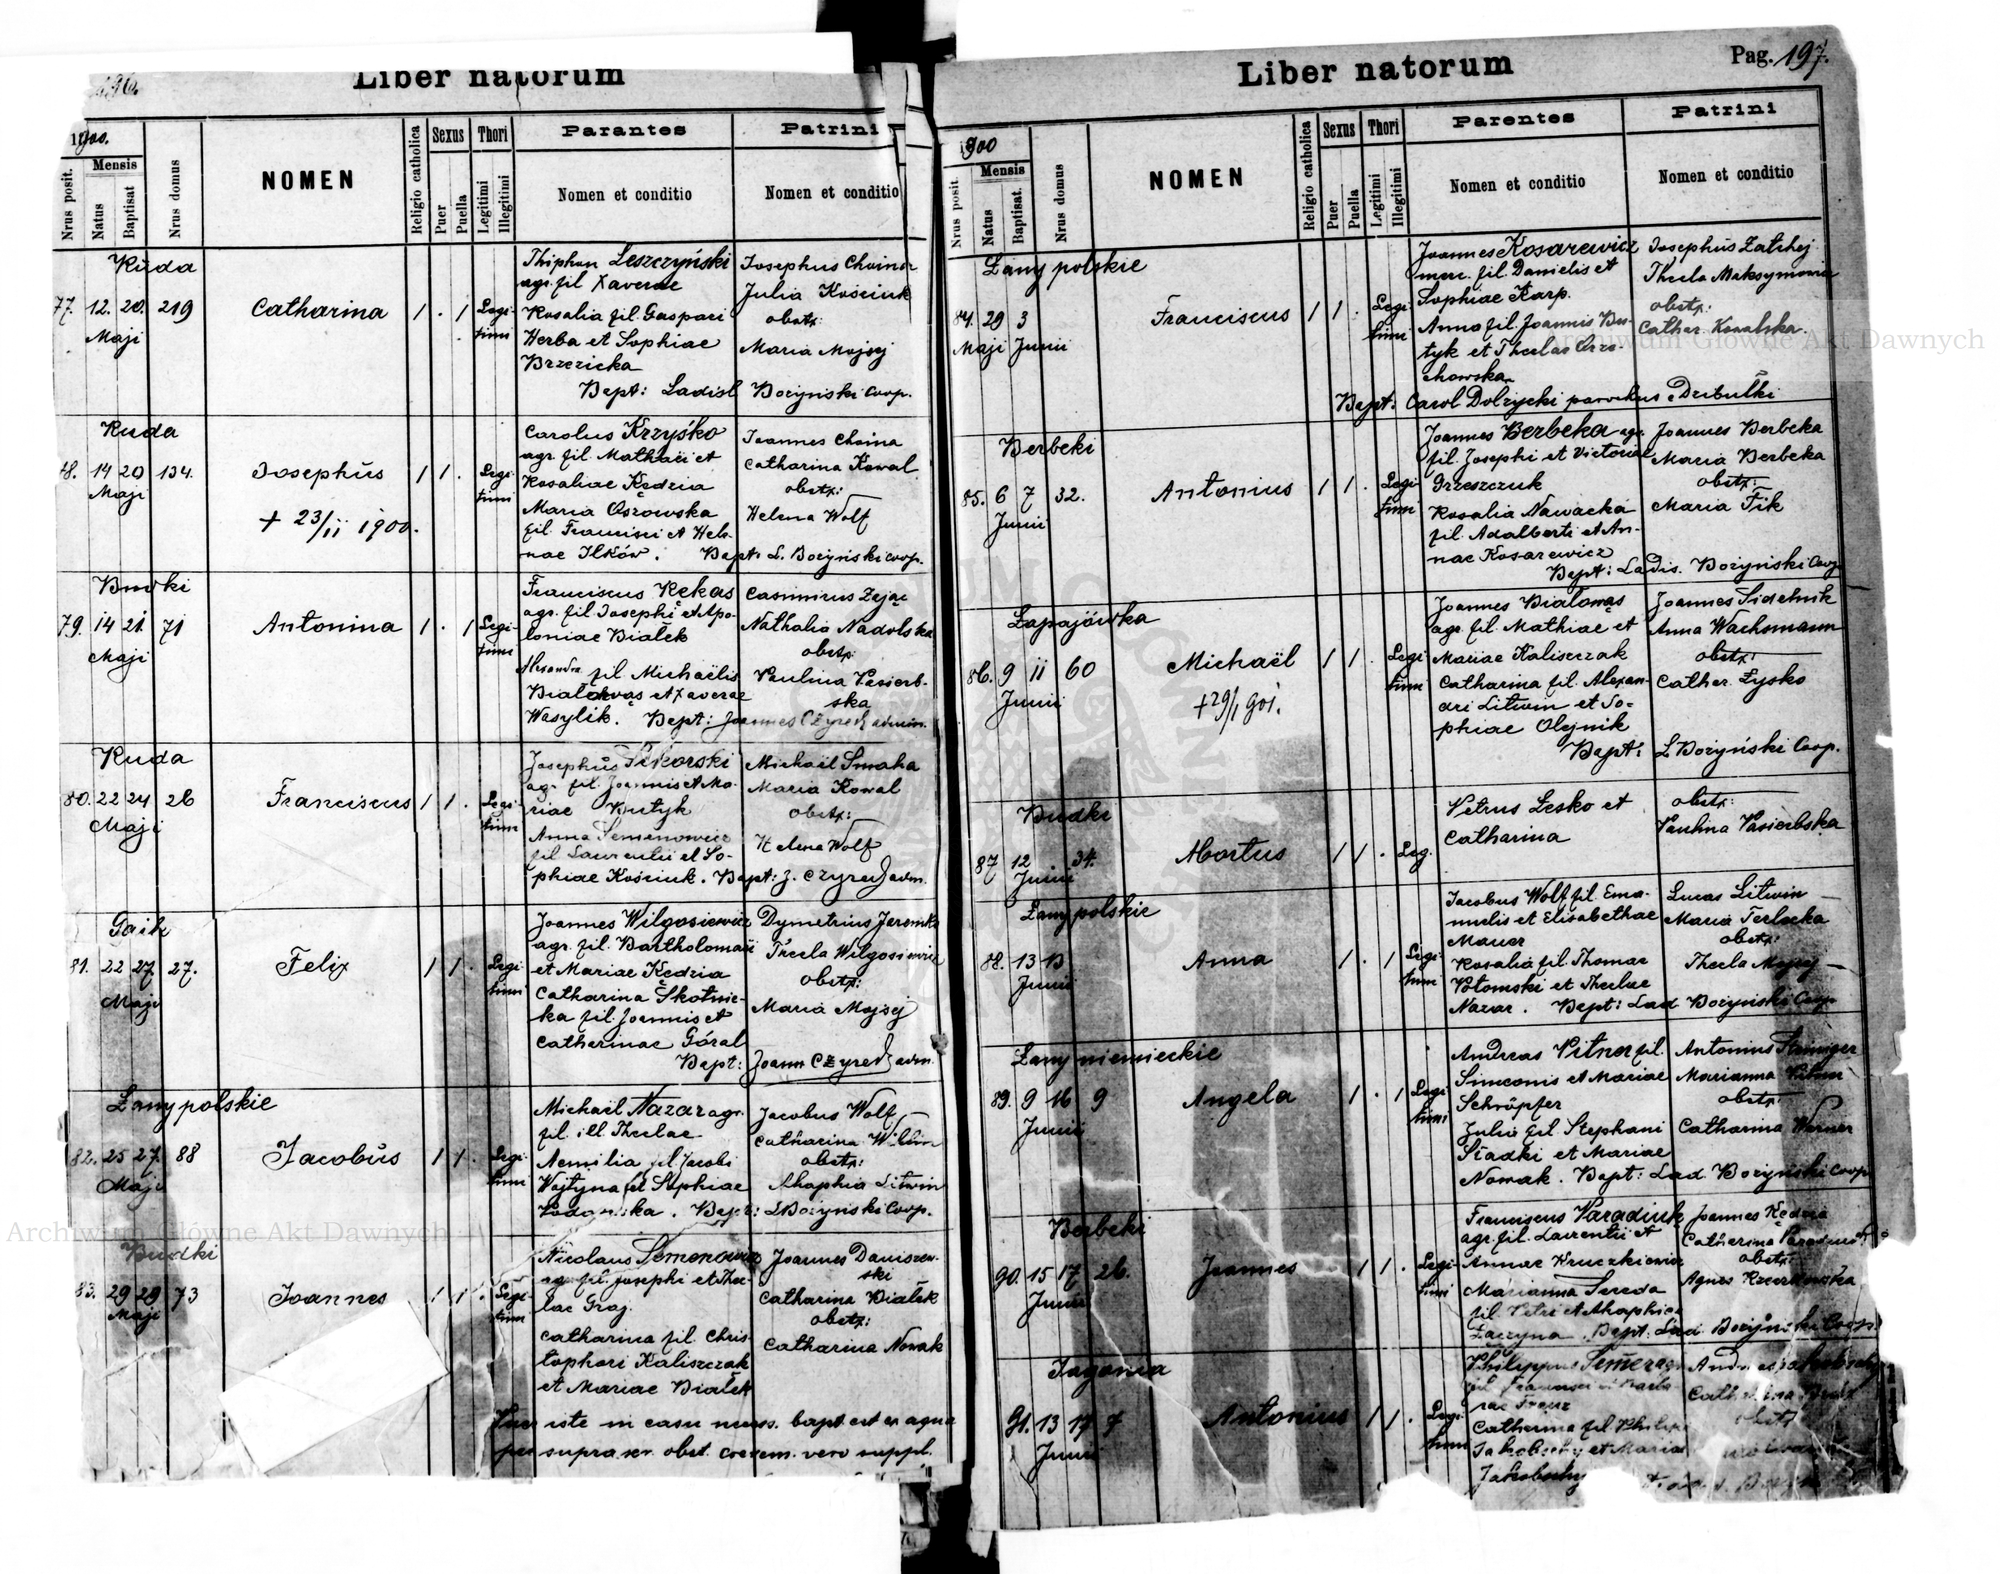 Liber natorum
1900.
Nrus posit.
Mensis
Natus
Baptisat
Nrus domus
NOMEN
Religio catholica
Sexus
Puer
Puella
Thori
Legitimi
Illegitimi
Parantes
Nomen et conditio
Patrini
Nomen et conditio
Ruda
77. 12. 20. 219 Catharina 1 . 1 Legi-
Maji timi
Thiphon Leszczyński
agr. fil Xaverae
Rosalia fil. Gaspari
Herba et Sophiae
Brzezicka
Josephus Choina
Julia Kościuk
obstx:
Maria Mojsej
Bapt: Ladisl Bożyński Coop.
Ruda
78. 14 20 134. Josephus 1 1 . Legi-
Maji timi
+ 23/ii 1900.
Carolus Krzyśko
agr. fil. Mathaei et
Rosaliae Kędzia
Maria Ossowska
fil. Francisci et Hele-
nae Ilków.
Joannes Choina
Catharina Kowal
obstx:
Helena Wolf
Bapt: L. Bożyński coop.
Budki
79. 14 21 71 Antonina 1 . 1 Legi-
Maji timi
Franciscus Rekas
agr. fil. Josephi et Apo-
loniae Białek
Alexandra fil. Michaëlis
Białowąs et Xaverae
Wasylik.
Casimirus Zając
Nathalia Nadolska
obstx:
Paulina Pasierb-
ska
Bapt: Joannes Czyrek admin.
Ruda
80. 22 24 26 Franciscus 1 1 . Legi-
Maji timi
Josephus Sikorski
agr. fil. Joannis et Ma-
riae Butyk
Anna Semenowicz
fil Laurentii et So-
phiae Kościuk.
Michaël Smaha
Maria Kowal
obstx:
Helena Wolf
Bapt: J. Czyrek adm.
Gaik
81. 22 27 27. Felix 1 1 . Legi-
Maji timi
Joannes Wilgosiewicz
agr. fil. Bartholomaei
et Mariae Kędzia
Catharina Skotnic-
ka fil. Joannis et
Catherinae Góral
Dymetrius Jaremko
Thecla Wilgosiewicz
obstx:
Maria Mojsej
Bapt: Joann Czyrek adm.
Łany polskie
82. 25 27. 88 Jacobus 1 1 . Legi-
Maji timi
Michaël Nazar agr.
fil. ill. Theclae
Aemilia fil. Jacobi
Wojtyna et Sophiae
Jacobus Wolf
Catharina
obstx:
Ahaphia Litwin
Bapt: L Bożyński Coop.
Budki
83. 29 29 73 Joannes 1 1 . Legi-
Maji timi
Nicolaus Semenowicz
agr. fil. Josephi et Thec-
lae Graj.
Catharina fil. Chris-
tophori Kaliszczak
et Mariae Białek
Joannes Daniszew-
ski
Catharina Białek
obstx:
Catharina Nowak
Puer iste in casu necess. bapt. est ex aqua
per supra scr. obst. cerem. vero suppl.
Liber natorum
Pag. 197.
1900
Nrus posit.
Mensis
Natus
Baptisat.
Nrus domus
NOMEN
Religio catholica
Sexus
Puer
Puella
Thori
Legitimi
Illegitimi
Parentes
Nomen et conditio
Patrini
Nomen et conditio
Łany polskie
84. 29 3 Franciscus 1 1 . Legi-
Maji Junii timi
Joannes Kosarewicz
merc. fil. Danielis et
Sophiae Karp.
Anna fil. Joannis Bu-
tyk et Theclae Orze-
chowska
Josephus Zatchej
Thecla Maksymowicz
obstx:
Cathar. Kowalska.
Bapt: Carol Dolzycki parochus e Dzibułki
Berbeki
85. 6 7 32. Antonius 1 1 . Legi-
Junii timi
Joannes Berbeka agr.
fil. Josephi et Victoriae
Grzeszczuk
Rosalia Nawacka
fil. Adalberti et An-
nae Kosarewicz
Joannes Berbeka
Maria Berbeka
obstx:
Maria Fik
Bapt: Ladis. Bożyński Coop
Łapajówka
86. 9 11 60 Michaël 1 1 . Legi-
Junii timi
+29/1 901.
Joannes Białowąs
agr. fil. Mathiae et
Mariae Kaliszczak
Catharina fil. Alexan-
dri Litwin et So-
phiae Olejnik
Joannes Sidelnik
Anna Wachsmann
obstx:
Cather. Zysko
Bapt: L Bożyński Coop.
Budki
87 12 . 34. Mortus 1 1 . Leg.
Junii
Petrus Lesko et
Catharina
obstx:
Paulina Pasierbska
Łany polskie
88. 13 13 Anna 1 . 1 Legi-
Junii timi
Jacobus Wolf fil. Ema-
nuelis et Elisabethae
Mauer
Rosalia fil. Thomae
Potomski et Theclae
Nazar.
Lucas Litwin
Maria Terlecka
obstx:
Thecla Mojsej
Bapt: Lad Bożyński Coop
Łany niemieckie
89. 9 16 9 Angela 1 . 1 Legi-
Junii timi
Andreas Pitner fil.
Simeonis et Mariae
Schröpfer
Julia fil Stephani
Sładki et Mariae
Nowak.
Antonius
Marianna Pitner
obstx:
Catharina Werner
Bapt: Lad Bożyński Coop
Berbeki
90. 15 17 26. Joannes 1 1 . Legi-
Junii timi
Franciscus Paradiuk
agr. fil. Laurentii et
Annae Kruczkiewicz
Marianna Sereda
fil. Petri et Ahaphiae
Łaczyna.
Joannes Kędzia
Catharina Paradiuk
obstx:
Agnes
Bapt: Lad Bożyński Coop
Jagonia
91. 13 17 7 Antonius 1 1 . Legi-
Junii timi
Philippus Semerez
Catharina fil Philippi
Jakobschy et Maria
Jakobschy
Catharina
obstx
Archiwum Główne Akt Dawnych
Archiwum Główne Akt Dawnych